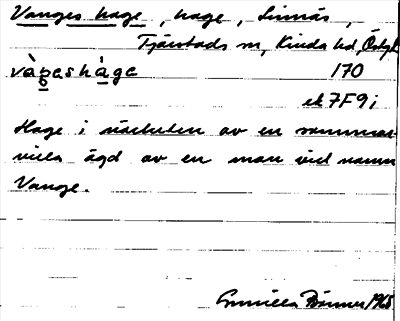 Vanges hage, hage, Linnäs,
Tjärstads sn, Kinda hd, Östgl
vàŋeshàge 170
ek 7F9i
Hage i närheten av en sommar-
villa ägd av en man vid namn
Vange.
Gunilla 1965